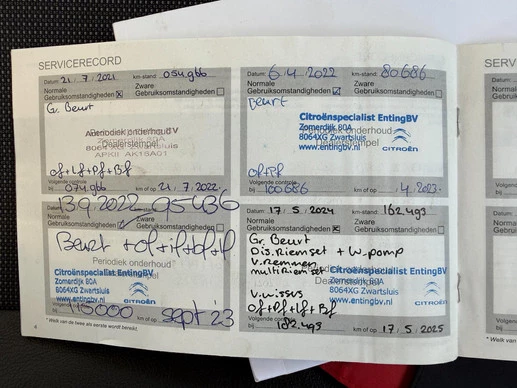 SERVICERECORD
Datum: 21.7.2021 km-stand: 054966
Normale Gebruiksomstandigheden ☒ Zware Gebruiksomstandigheden ☐
Gr. Beurt
Periodiek onderhoud
Dealerstempel
8064XG Zwartsluis
of+Lf+Pf+Bf
Volgende controle
bij 074.966 km of op 21.7.2022
Datum: 6.4.2022 km-stand: 80686
Normale Gebruiksomstandigheden ☒ Zware Gebruiksomstandigheden ☐
Beurt
Citroënspecialist EntingBV
Zomerdijk 80A
8064XG Zwartsluis
www.entingbv.nl
CITROËN
Periodiek onderhoud
Dealerstempel
of+Pf
Volgende controle
bij 100686 .4.2023
13 9 2022 95436
Gebruiksomstandigheden Gebruiksomstandigheden ☐
Beurt +of+
Periodiek onderhoud
Citroënspecialist EntingBV
Zomerdijk 80A
8064XG Zwartsluis
www.entingbv.nl
CITROËN
115000 km of op sept '23
Datum: 17.5.2024 km-stand: 162.493
Normale Gebruiksomstandigheden ☒ Zware Gebruiksomstandigheden ☐
Gr. Beurt
Dis.Riemset + w.pomp
V.Remmen
multiRiemset
Citroënspecialist EntingBV
Zomerdijk 80A
8064XG Zwartsluis
www.entingbv.nl
CITROËN
of+Pf+Lf+Bf
Volgende controle
bij 182.493 km of op 17.5.2025
* Welk van de twee als eerste wordt bereikt.
4
SERV